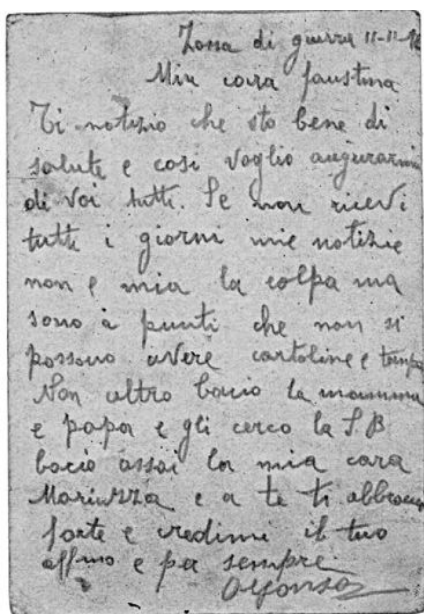 Zona di guerra 11-11-16
Mia cara Faustina
Ti notizio che sto bene di
salute e così voglio augurarmi
di voi tutti. Se non ricevi
tutti i giorni mie notizie
non e mia la colpa ma
sono à punti che non si
possono avere cartoline e tempo
Non altro bacio la mamma
e papa e gli cerco la S.B
bacio assai la mia cara
Mariuzza e a te ti abbraccio
forte e credimi il tuo
affmo e per sempre
Alfonso